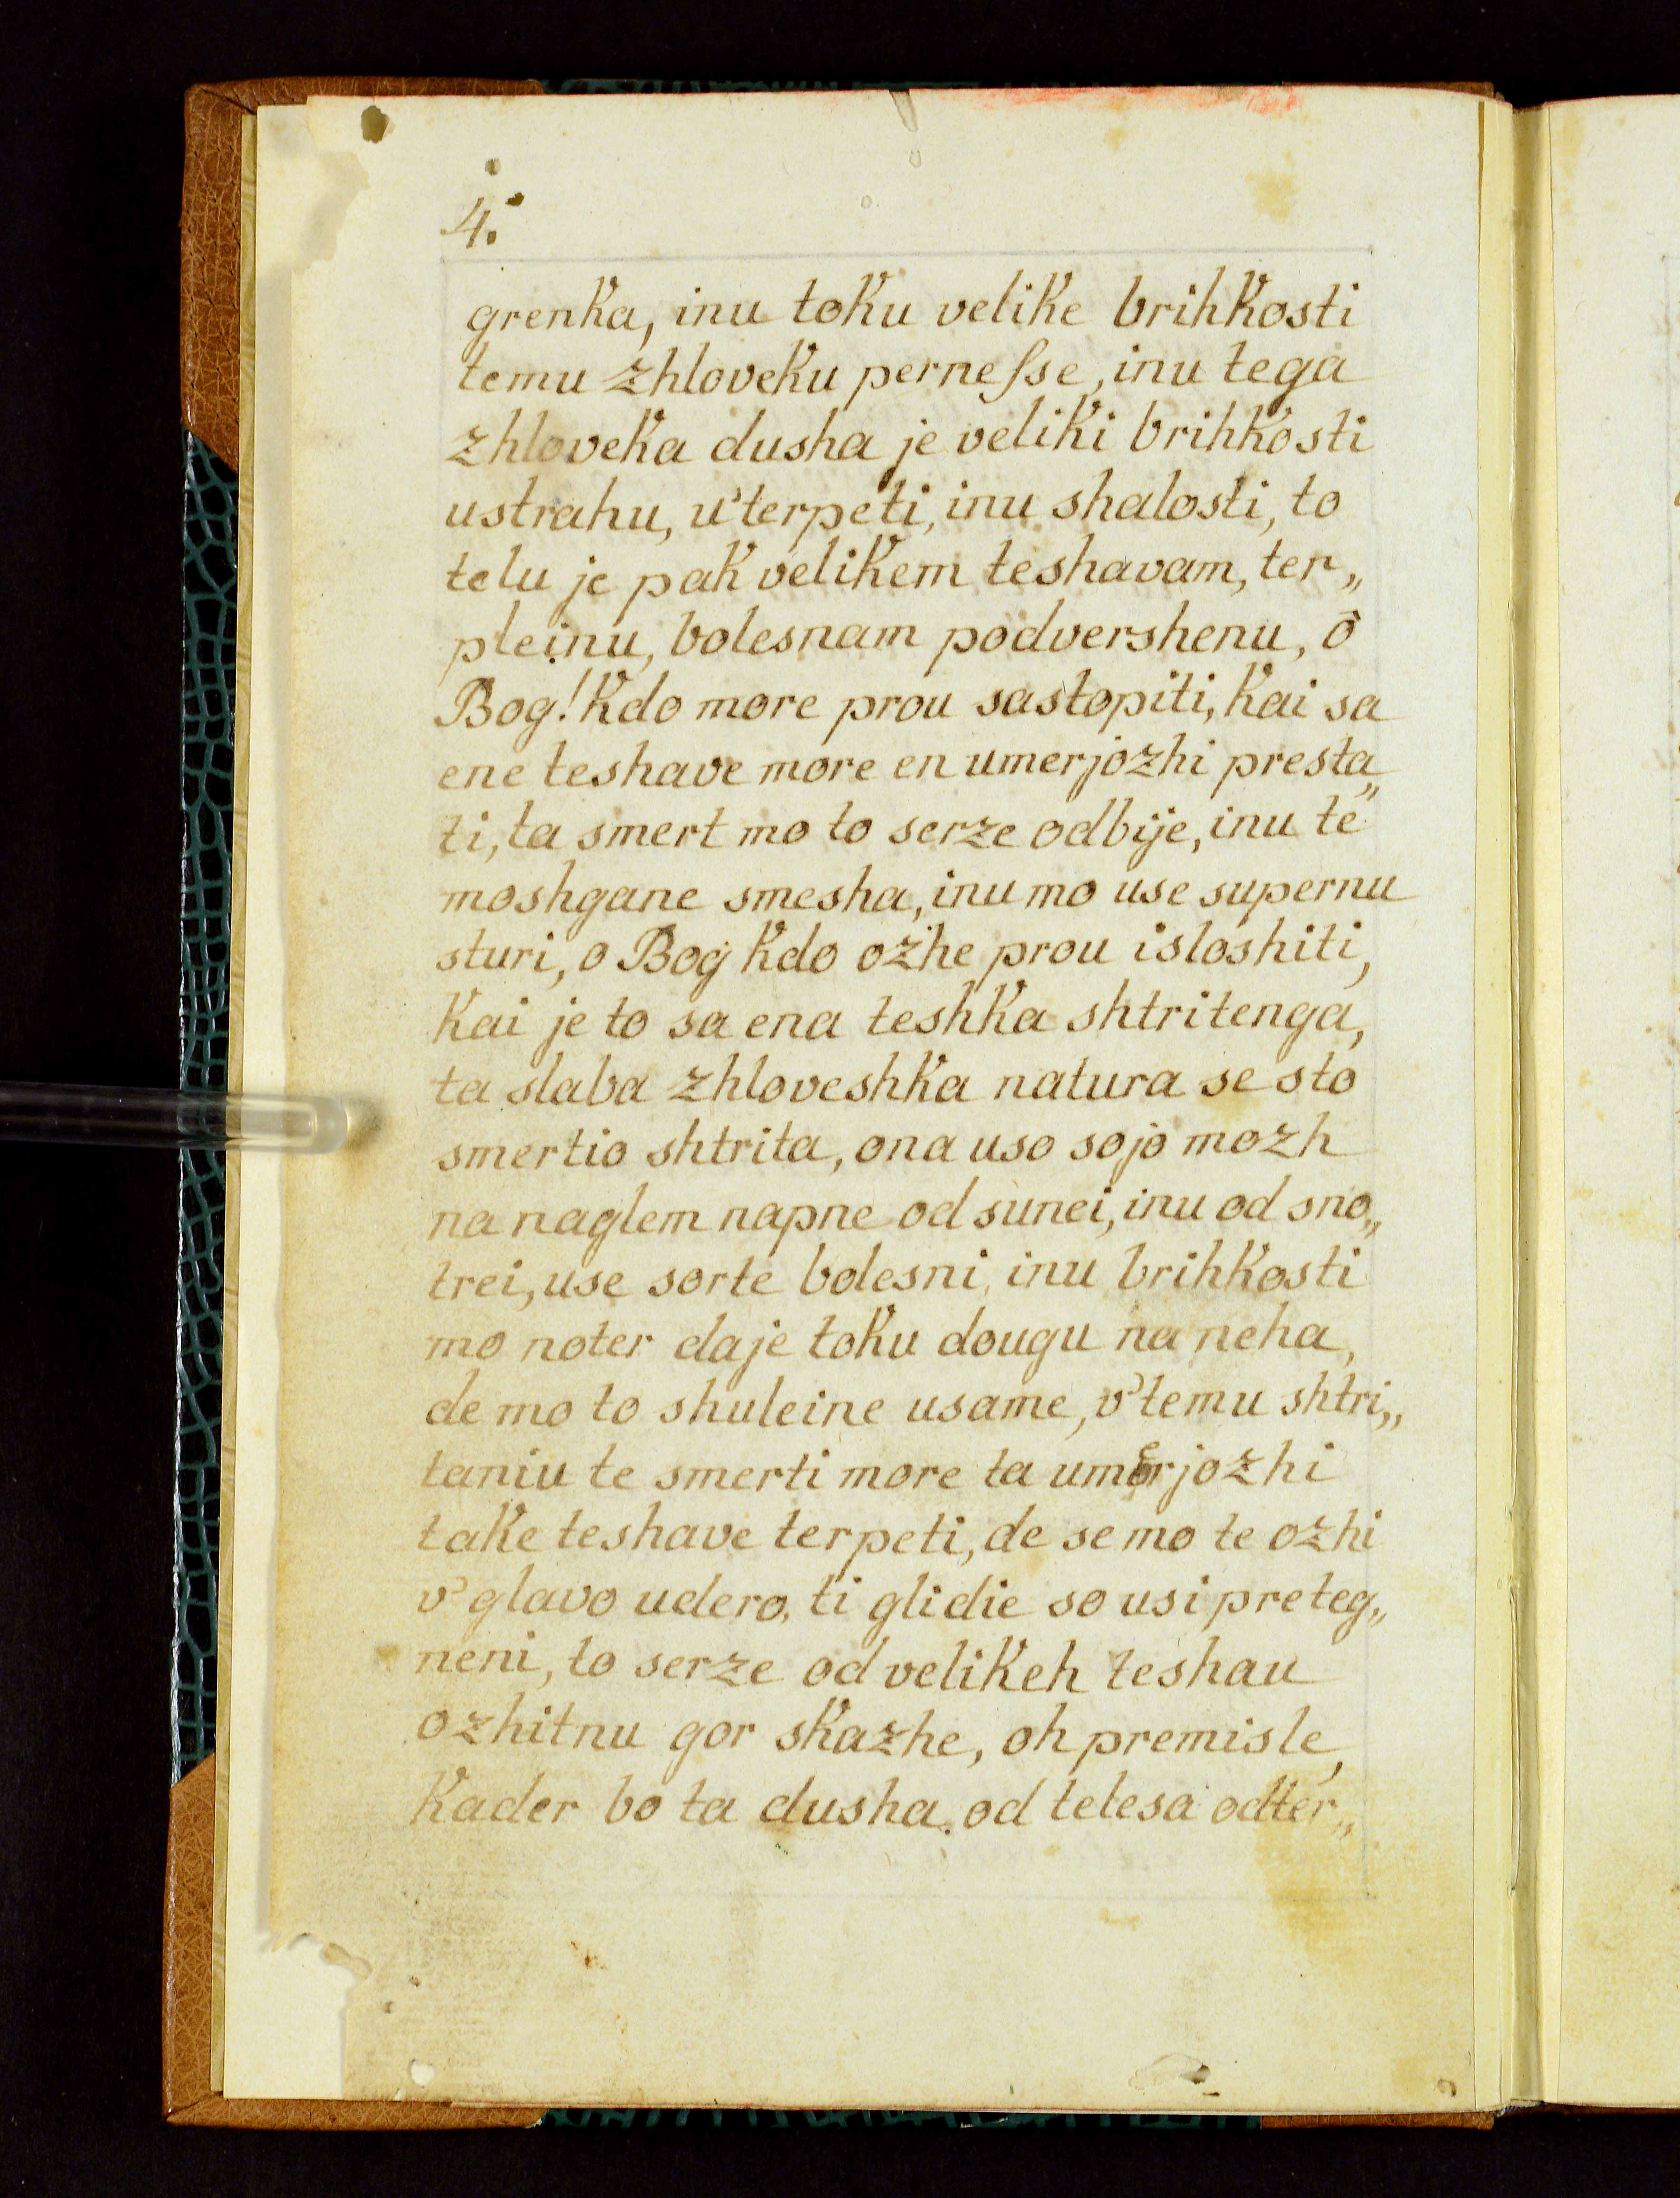 4.
grenka, inu toku velike brihkosti
temu zhloveku perneſse, inu tega
zhloveka dusha je veliki brihkosti
ustrahu, u'terpeti, inu shalosti, to
telu je pak velikem teshavam, ter„
pleinu, bolesnam podvershenu, ô
Bog! kdo more prou sastopiti, kai sa
ene teshave more en umerjozhi presta„
ti, ta smert mo to serze odbije, inu te
moshgane smesha, inu mo use supernu
sturi, o Bog kdo ozhe prou isloshiti,
kai je to sa ena teshka shtritenga,
ta slaba zhloveshka natura se sto
smertio shtrita, ona uso sojo mozh
na naglem napne od sunei, inu od sno„
trei, use sorte bolesni, inu brihkosti
mo noter daje toku dougu na neha,
de mo to shuleine usame, v'temu shtri„
taniu te smerti more ta umerjozhi
take teshave terpeti, de se mo te ozhi
v'glavo udero, ti glidie so usi preteg„
neni, to serze od velikeh teshau
ozhitnu gor skazhe, oh premisle,
kader bo ta dusha od telesa odter„